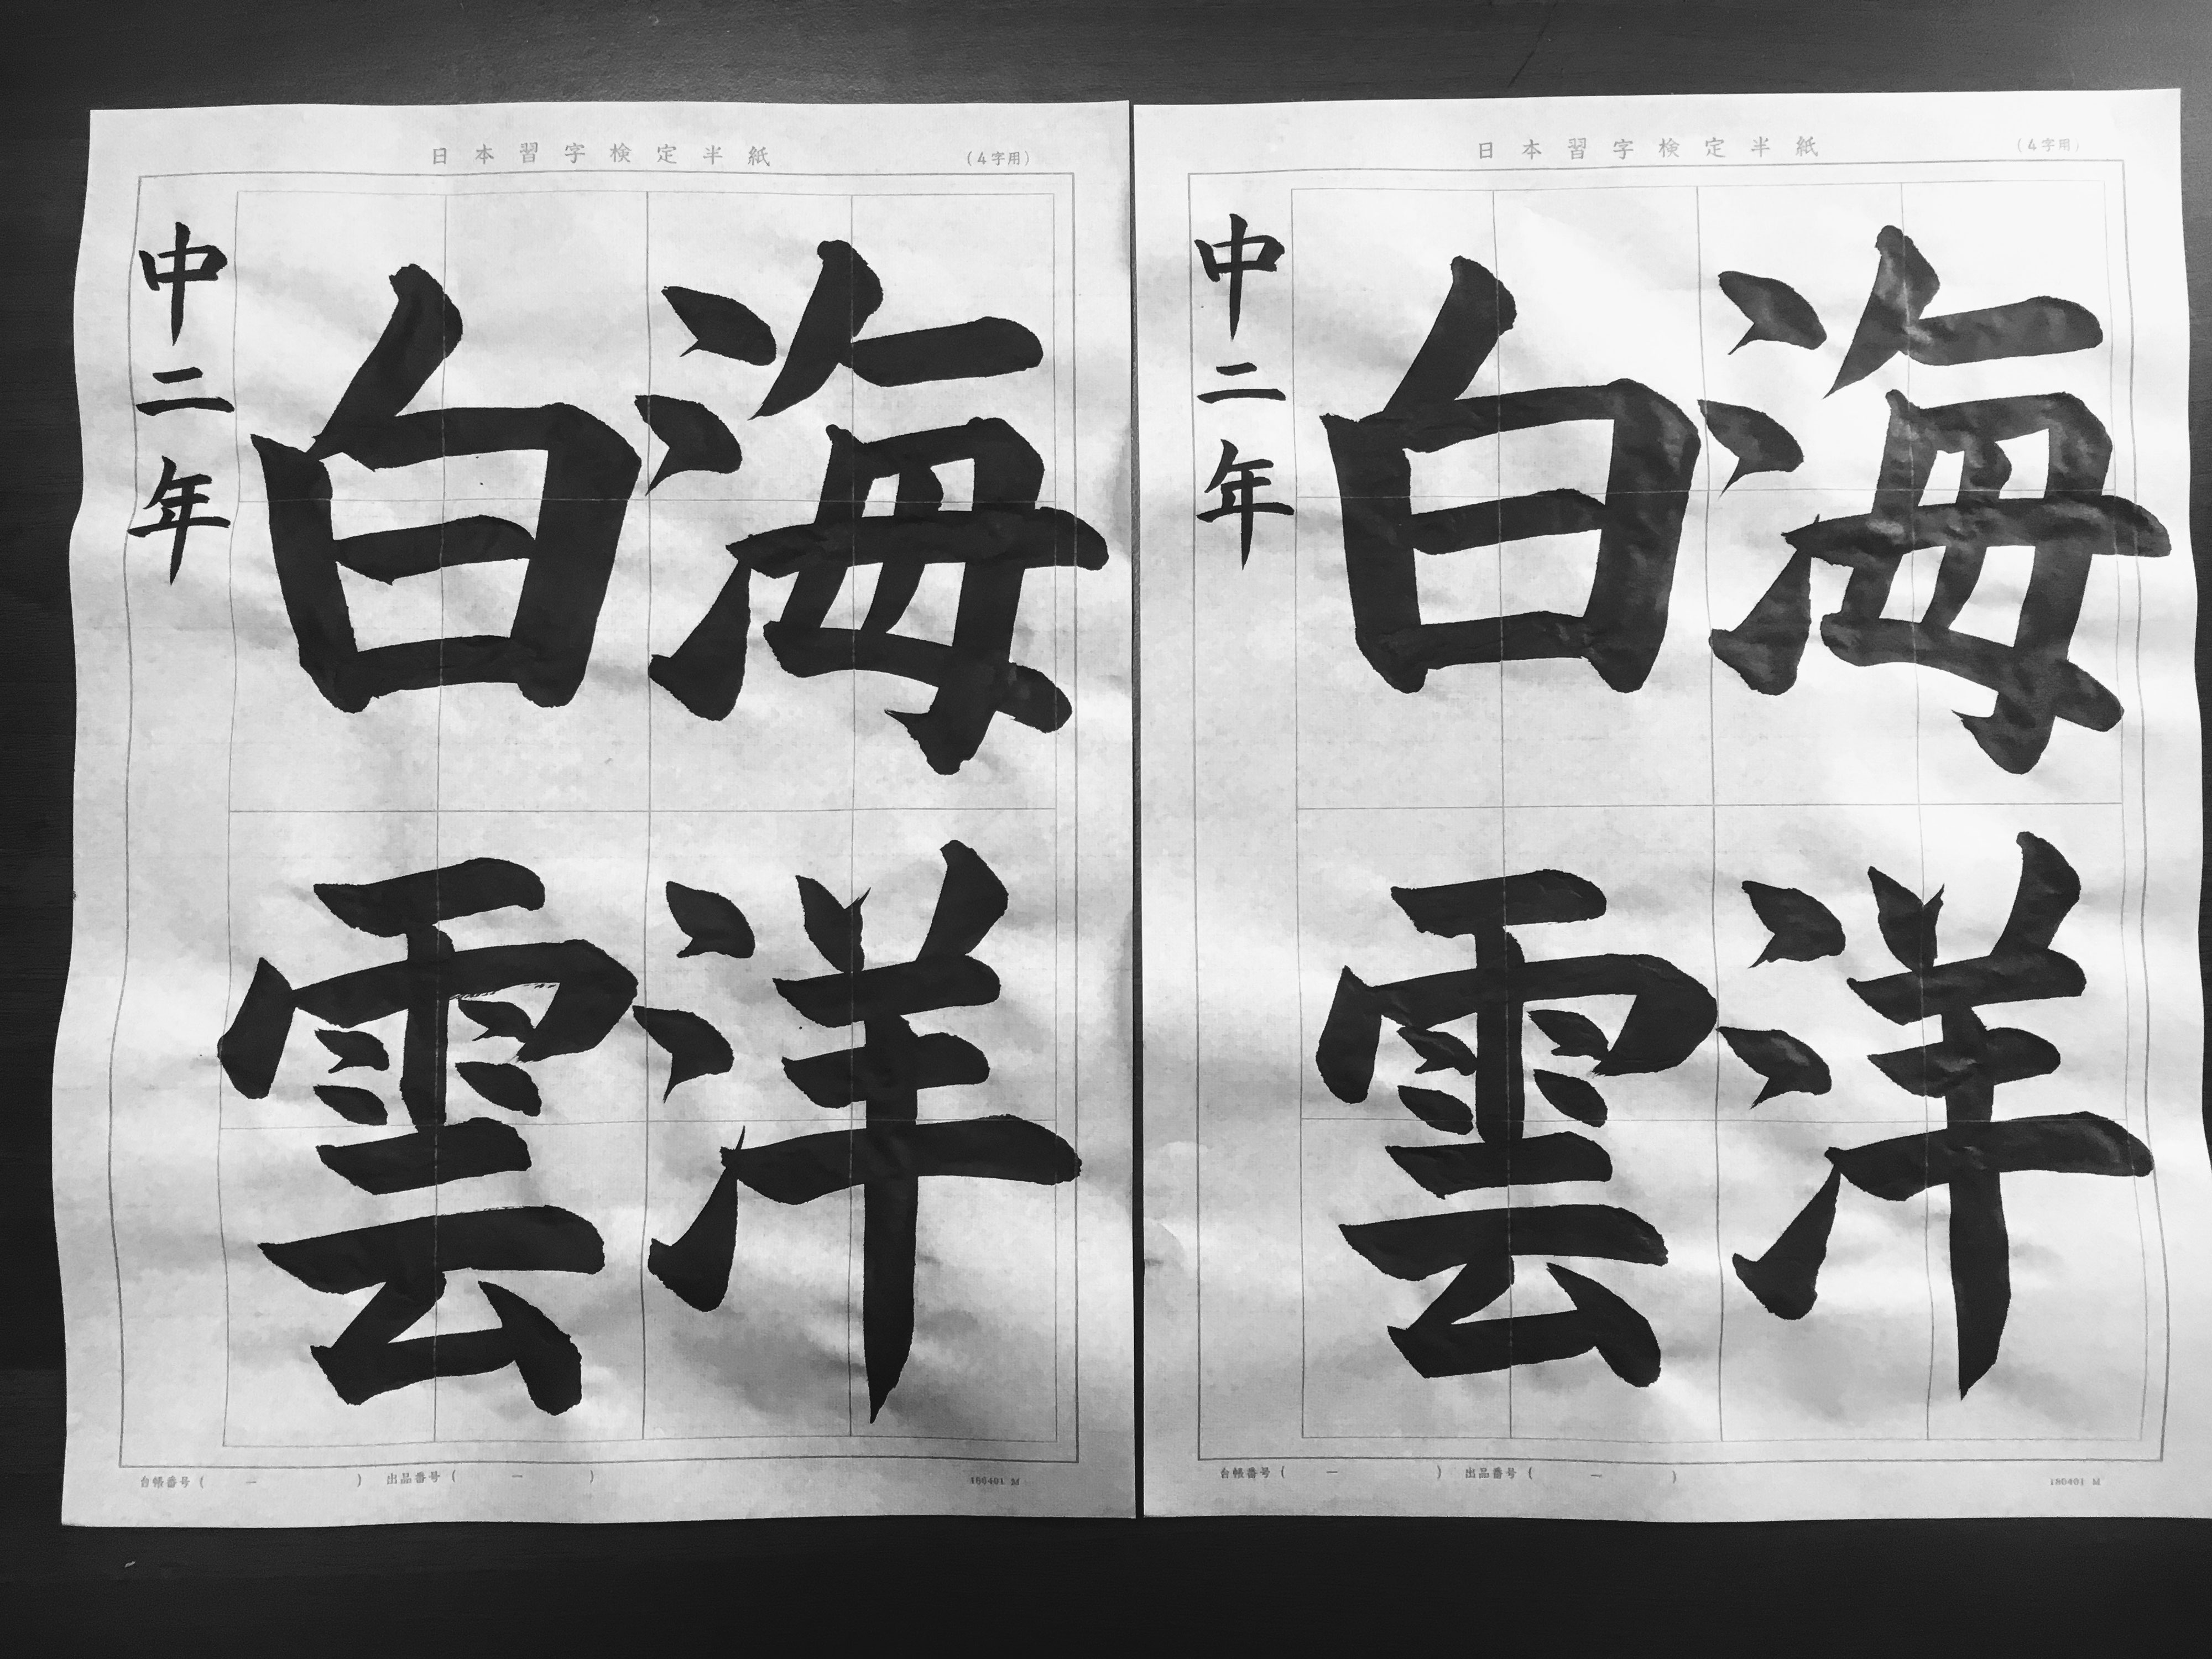 日本習字検定半紙
(4字用)
海洋
白雲
中二年
台帳番号 ( ー ) 出品番号 ( ー )
180401 M
日本習字検定半紙
(4字用)
海洋
白雲
中二年
台帳番号 ( ー ) 出品番号 ( ー )
180401 M